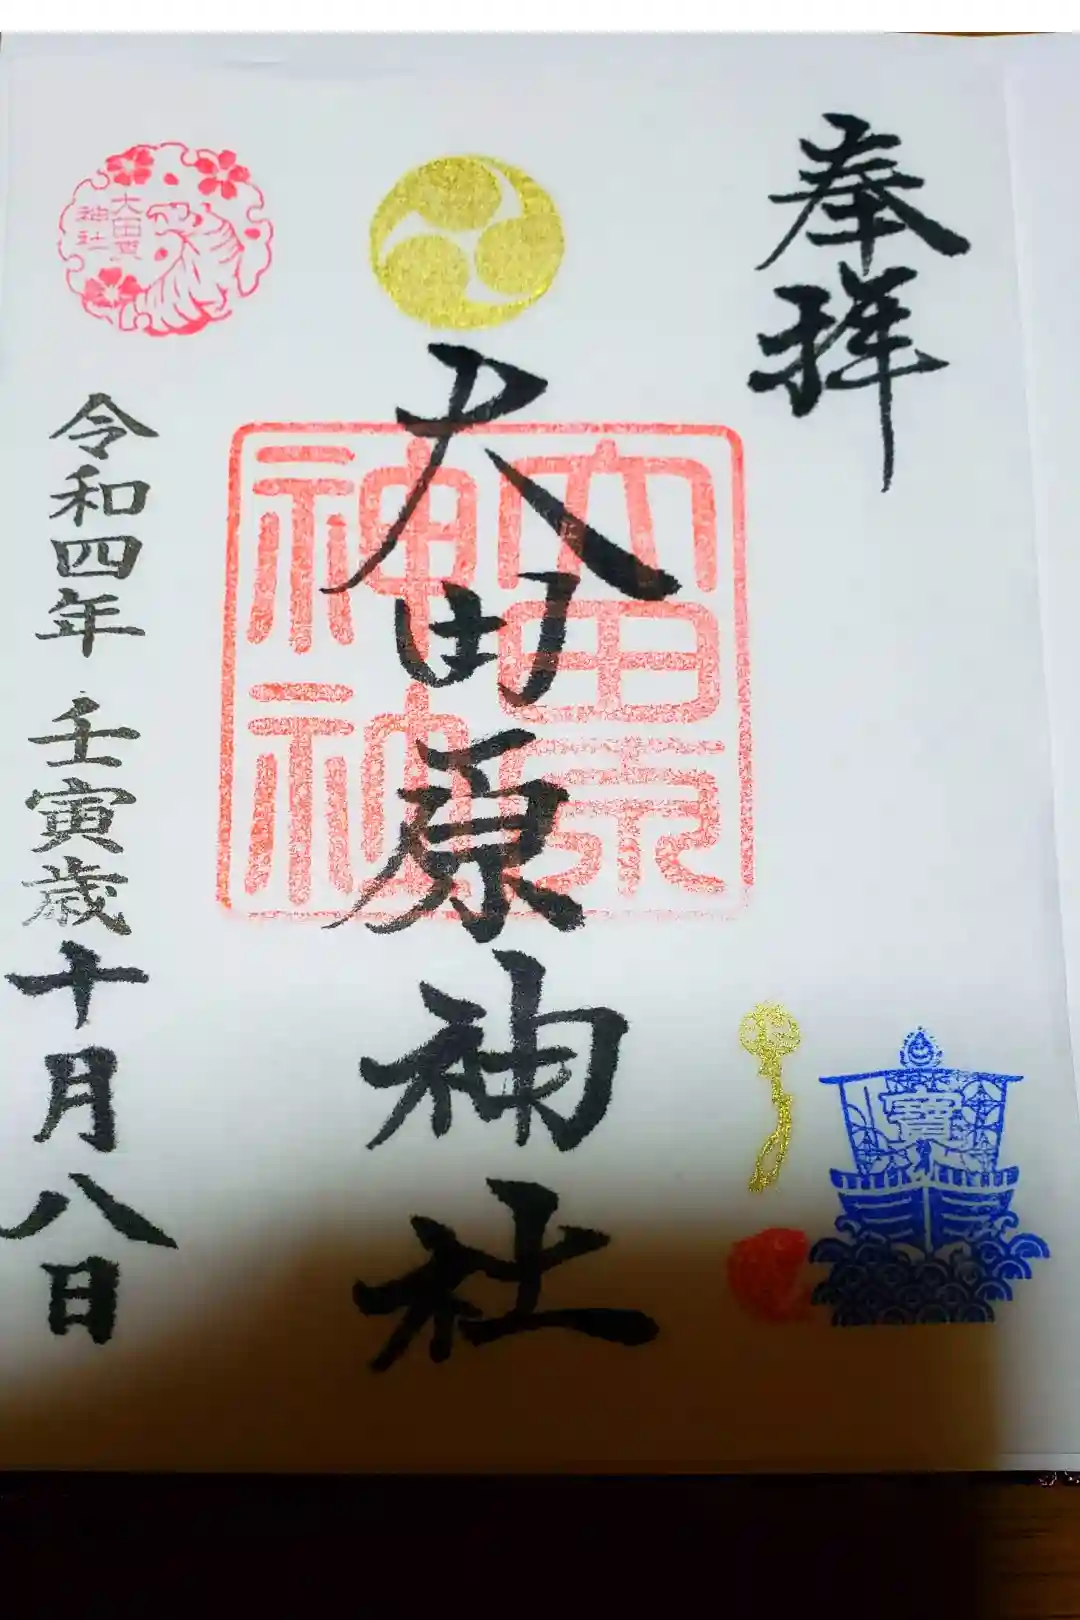 奉拝
大田原神社
大田原神社
令和四年 壬寅歳十月八日
大田原
神社
寶